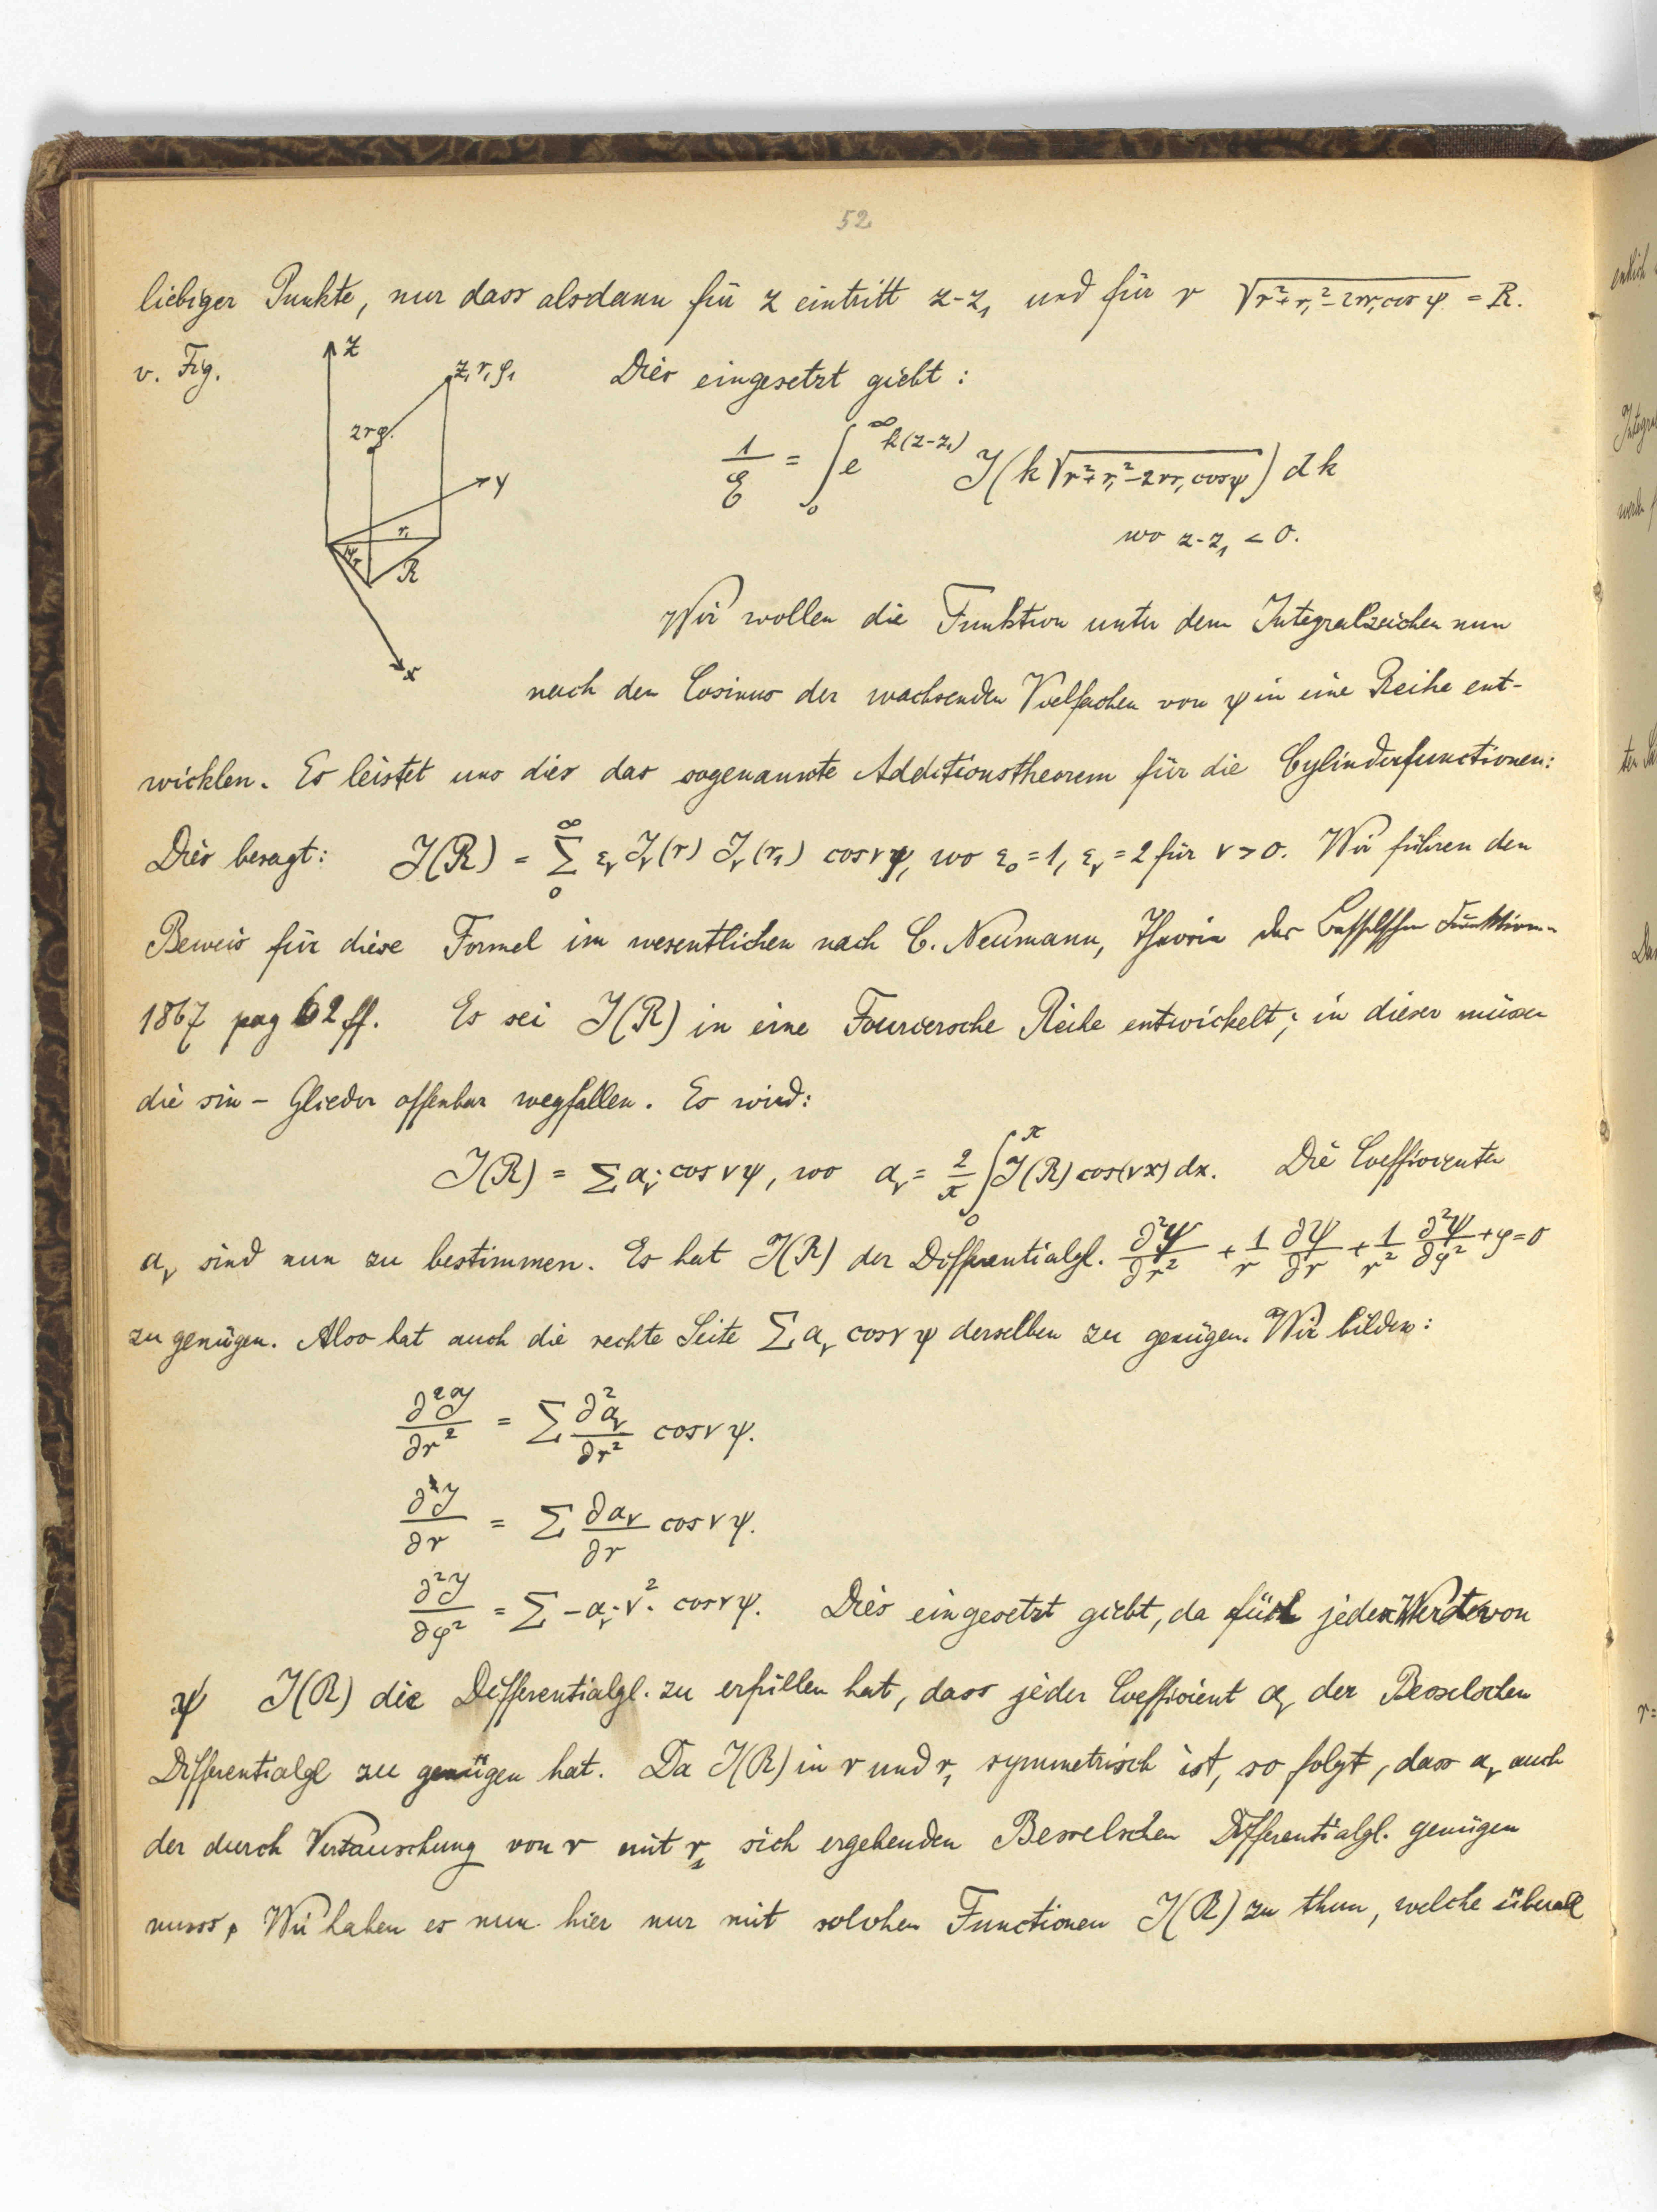 52
liebiger Punkte, nur dass alsdann für z eintritt z-z₁ und für r √(r²+r₁²-2rr₁cos ψ) = R.
v. Fig.
Z
z₁ r₁ φ₁
z r φ.
Y
r₁
ψ
r
R
x
Dies eingesetzt giebt:
1/ℰ = ∫₀^∞ e^{k(z-z₁)} J(k√(r²+r₁²-2rr₁cosψ)) dk
wo z-z₁ < 0.
Wir wollen die Funktion unter dem Integralzeichen nun
nach den Cosinus der wachsenden Vielfachen von ψ in eine Reihe ent-
wicklen. Es leistet uns dies das sogenannte Additionstheorem für die Cylinderfunctionen:
Dies besagt: J(R) = ∑₀^∞ ε_ν J_ν(r) J_ν(r₁) cosνψ, wo ε₀=1, ε_ν=2 für ν>0. Wir führen den
Beweis für diese Formel im wesentlichen nach C. Neumann, Theorie der Besselschen Funktionen
1867 pag 62 ff. Es sei J(R) in eine Fouriersche Reihe entwickelt; in dieser müssen
die sin-Glieder offenbar wegfallen. Es wird:
J(R) = ∑ a_ν·cos νψ, wo a_ν = 2/π ∫₀^π J(R) cos(νx) dx. Die Coefficienten
a_ν sind nun zu bestimmen. Es hat J(R) der Differentialgl. ∂²ψ/∂r² + 1/r ∂ψ/∂r + 1/r² ∂²ψ/∂φ² + φ = 0
zu genügen. Also hat auch die rechte Seite ∑ a_ν cosν ψ derselben zu genügen. Wir bilden:
∂²J/∂r² = ∑ ∂²a_ν/∂r² cosν ψ.
∂J/∂r = ∑ ∂a_ν/∂r cosν ψ.
∂²J/∂φ² = ∑ -a_ν·ν²· cosν ψ. Dies eingesetzt giebt, da für jeden Wert von
ψ J(R) die Differentialgl. zu erfüllen hat, dass jeder Coefficient a_ν der Besselschen
Differentialgl zu genügen hat. Da J(R) in r und r₁ symmetrisch ist, so folgt, dass a_ν auch
der durch Vertauschung von r mit r₁ sich ergebenden Besselschen Differentialgl. genügen
muss. Wir haben es nun hier nur mit solchen Functionen J(R) zu thun, welche überall